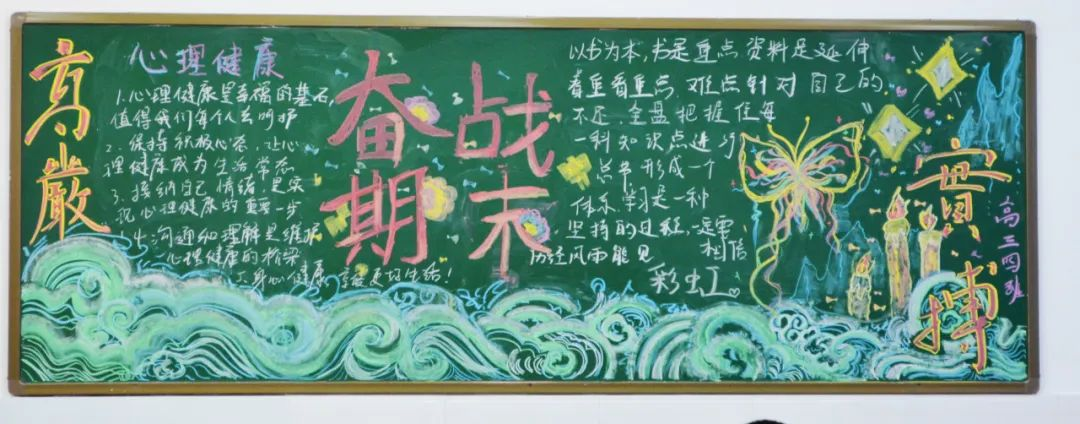 高
嚴
心理健康
1.心理健康是幸福的基石,
值得我们每个人去呵护
2.保持积极心态,让心
理健康成为生活常态
3.接纳自己情绪是实
现心理健康的重要一步
4.沟通和理解是维护
心理健康的桥梁
5.身心健康,享受更好生活!
奋战
期末
以书为本,书是重点资料是延伸
着重看重点,难点针对自己的
不足,全盘把握住每
一科知识点进行
总节形成一个
体系,学习是一种
坚持的过程,一定需
相信
历经风雨能见
彩虹
實
搏
高三四班